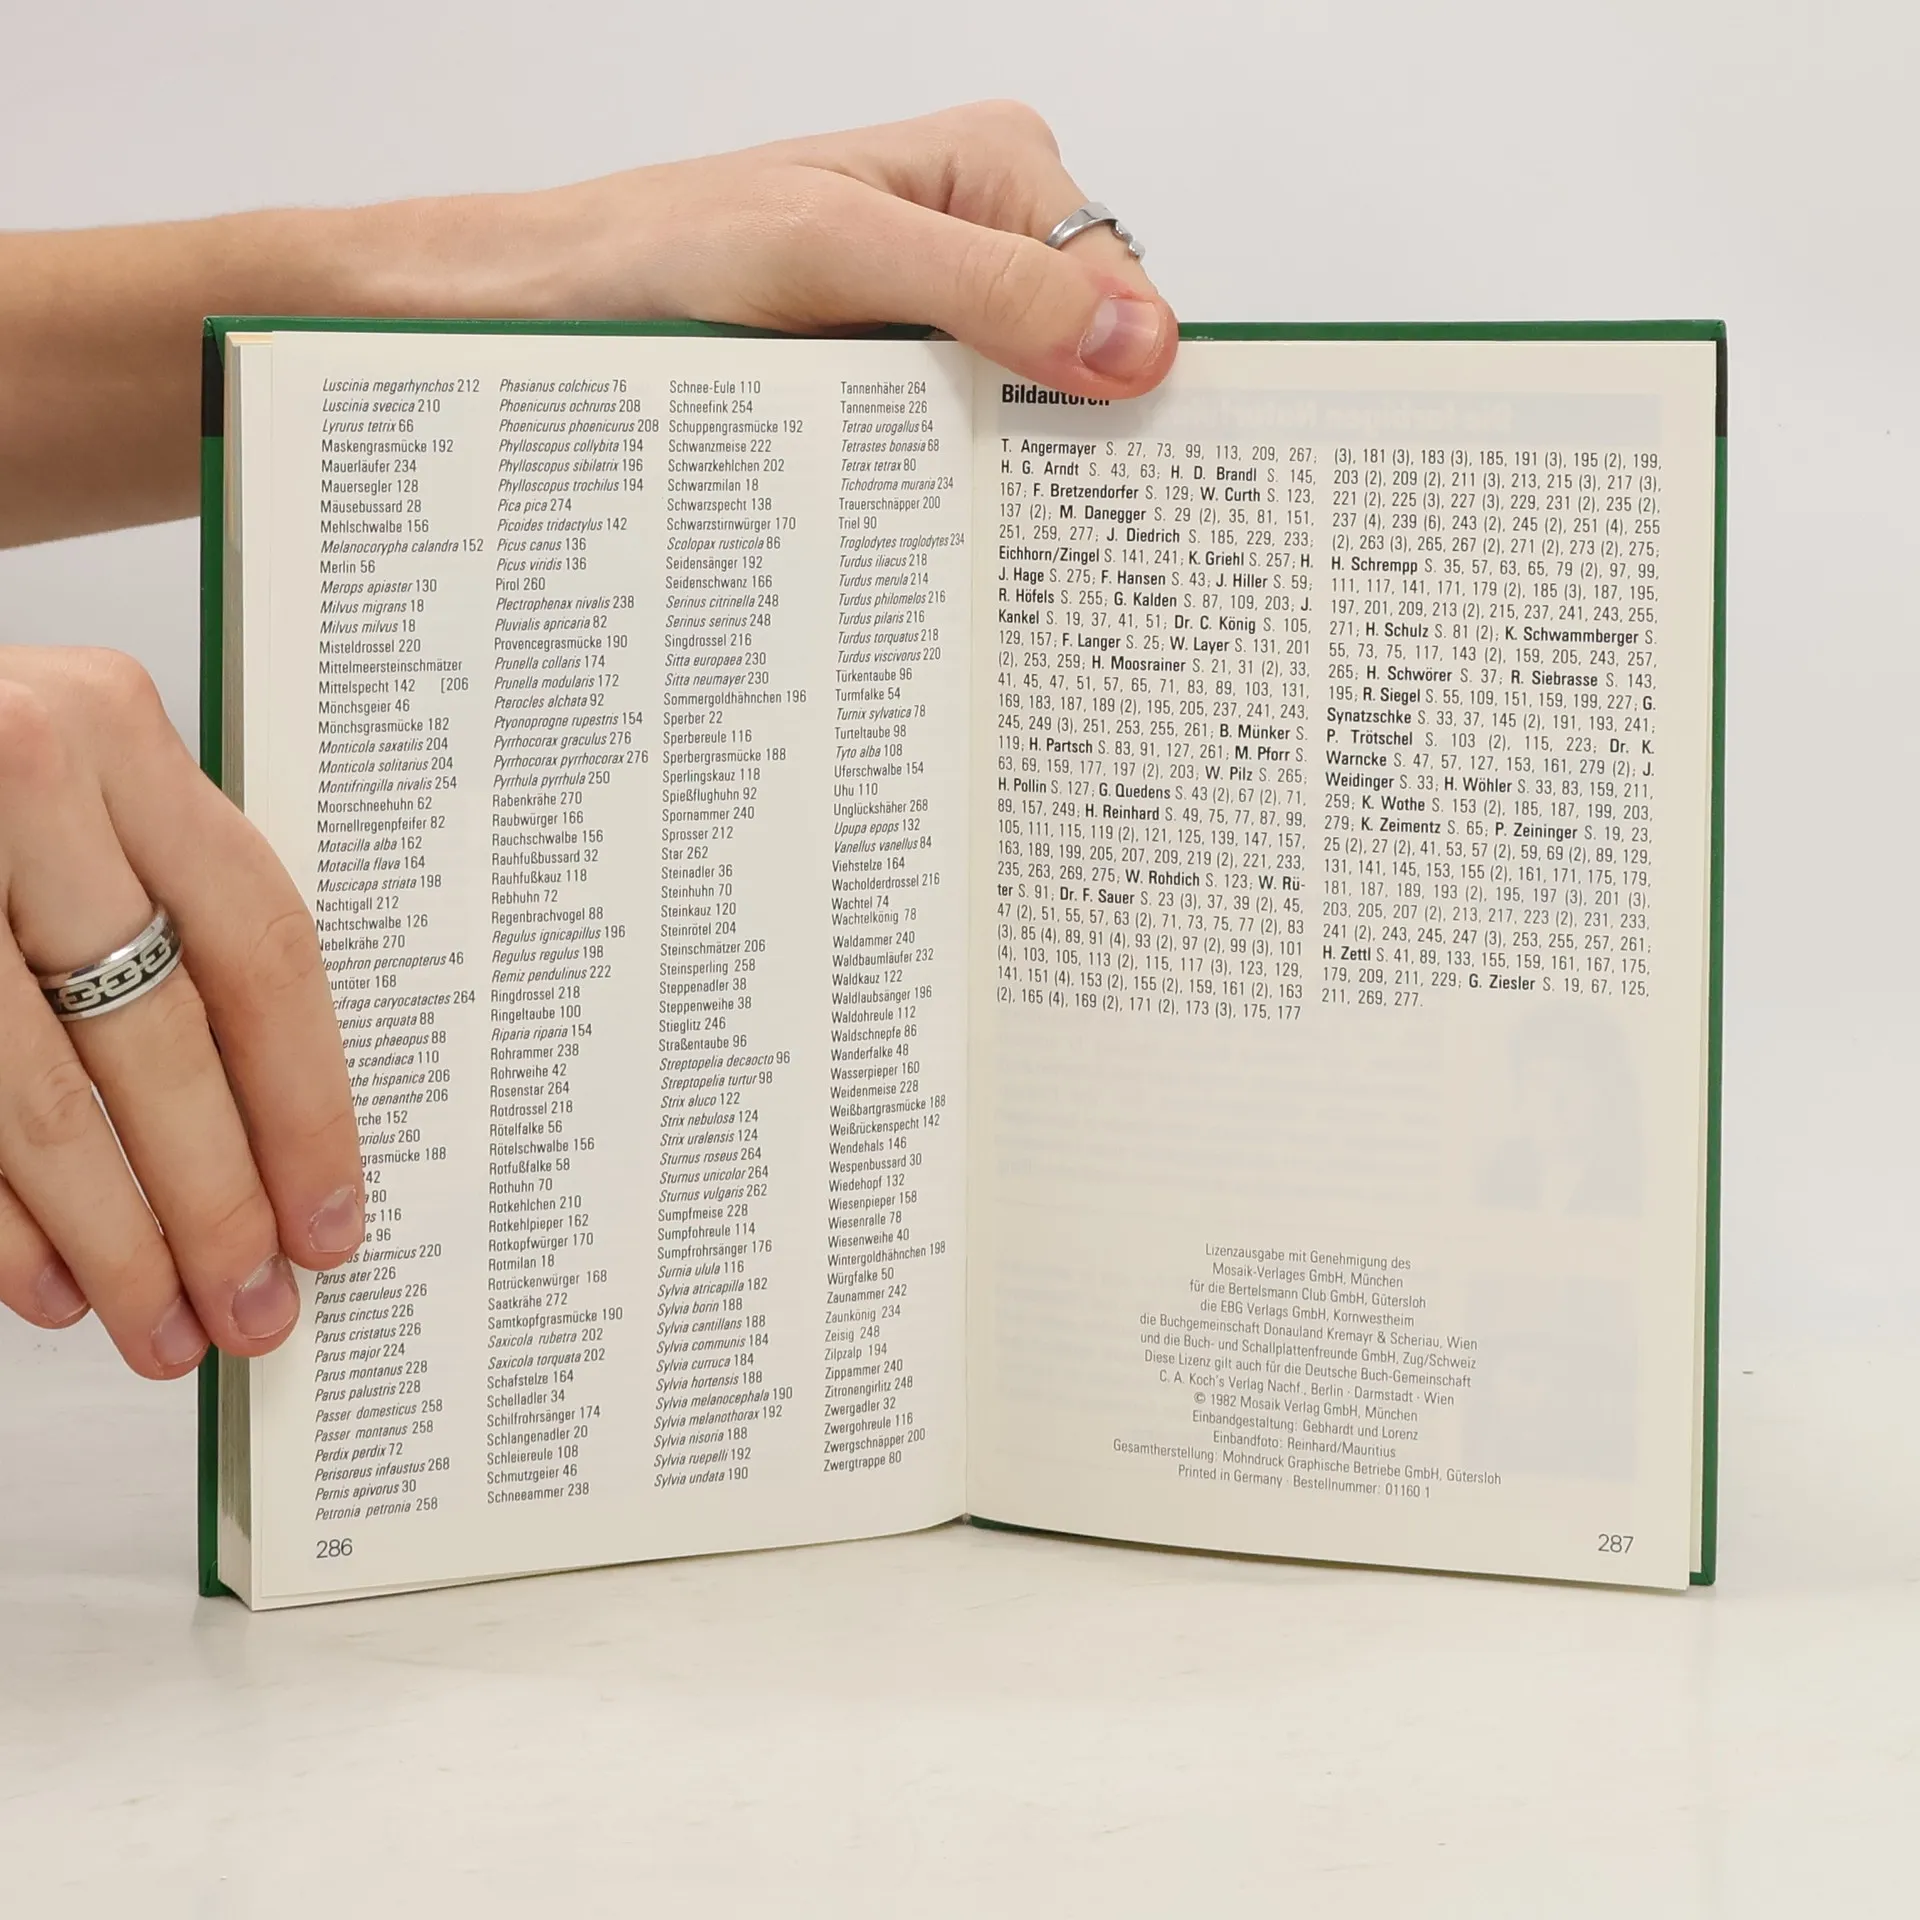 Luscinia megarhynchos 212
Luscinia svecica 210
Lyrurus tetrix 66
Maskengrasmücke 192
Mauerläufer 234
Mauersegler 128
Mäusebussard 28
Mehlschwalbe 156
Melanocorypha calandra 152
Merlin 56
Merops apiaster 130
Milvus migrans 18
Milvus milvus 18
Misteldrossel 220
Mittelmeersteinschmätzer
Mittelspecht 142 [206
Mönchsgeier 46
Mönchsgrasmücke 182
Monticola saxatilis 204
Monticola solitarius 204
Montifringilla nivalis 254
Moorschneehuhn 62
Mornellregenpfeifer 82
Motacilla alba 162
Motacilla flava 164
Muscicapa striata 198
Nachtigall 212
Nachtschwalbe 126
ebelkrähe 270
eophron percnopterus 46
untöter 168
cifraga caryocatactes 264
enius arquata 88
enius phaeopus 88
a scandiaca 110
the hispanica 206
he oenanthe 206
rche 152
oriolus 260
grasmücke 188
42
80
ps 116
e 96
us biarmicus 220
Parus ater 226
Parus caeruleus 226
Parus cinctus 226
Parus cristatus 226
Parus major 224
Parus montanus 228
Parus palustris 228
Passer domesticus 258
Passer montanus 258
Perdix perdix 72
Perisoreus infaustus 268
Pernis apivorus 30
Petronia petronia 258
Phasianus colchicus 76
Phoenicurus ochruros 208
Phoenicurus phoenicurus 208
Phylloscopus collybita 194
Phylloscopus sibilatrix 196
Phylloscopus trochilus 194
Pica pica 274
Picoides tridactylus 142
Picus canus 136
Picus viridis 136
Pirol 260
Plectrophenax nivalis 238
Pluvialis apricaria 82
Provencegrasmücke 190
Prunella collaris 174
Prunella modularis 172
Pterocles alchata 92
Ptyonoprogne rupestris 154
Pyrrhocorax graculus 276
Pyrrhocorax pyrrhocorax 276
Pyrrhula pyrrhula 250
Rabenkrähe 270
Raubwürger 166
Rauchschwalbe 156
Rauhfußbussard 32
Rauhfußkauz 118
Rebhuhn 72
Regenbrachvogel 88
Regulus ignicapillus 196
Regulus regulus 198
Remiz pendulinus 222
Ringdrossel 218
Ringeltaube 100
Riparia riparia 154
Rohrammer 238
Rohrweihe 42
Rosenstar 264
Rotdrossel 218
Rötelfalke 56
Rötelschwalbe 156
Rotfußfalke 58
Rothuhn 70
Rotkehlchen 210
Rotkehlpieper 162
Rotkopfwürger 170
Rotmilan 18
Rotrückenwürger 168
Saatkrähe 272
Samtkopfgrasmücke 190
Saxicola rubetra 202
Saxicola torquata 202
Schafstelze 164
Schelladler 34
Schilfrohrsänger 174
Schlangenadler 20
Schleiereule 108
Schmutzgeier 46
Schneeammer 238
Schnee-Eule 110
Schneefink 254
Schuppengrasmücke 192
Schwanzmeise 222
Schwarzkehlchen 202
Schwarzmilan 18
Schwarzspecht 138
Schwarzstirnwürger 170
Scolopax rusticola 86
Seidensänger 192
Seidenschwanz 166
Serinus citrinella 248
Serinus serinus 248
Singdrossel 216
Sitta europaea 230
Sitta neumayer 230
Sommergoldhähnchen 196
Sperber 22
Sperbereule 116
Sperbergrasmücke 188
Sperlingskauz 118
Spießflughuhn 92
Spornammer 240
Sprosser 212
Star 262
Steinadler 36
Steinhuhn 70
Steinkauz 120
Steinrötel 204
Steinschmätzer 206
Steinsperling 258
Steppenadler 38
Steppenweihe 38
Stieglitz 246
Straßentaube 96
Streptopelia decaocto 96
Streptopelia turtur 98
Strix aluco 122
Strix nebulosa 124
Strix uralensis 124
Sturnus roseus 264
Sturnus unicolor 264
Sturnus vulgaris 262
Sumpfmeise 228
Sumpfohreule 114
Sumpfrohrsänger 176
Surnia ulula 116
Sylvia atricapilla 182
Sylvia borin 188
Sylvia cantillans 188
Sylvia communis 184
Sylvia curruca 184
Sylvia hortensis 188
Sylvia melanocephala 190
Sylvia melanothorax 192
Sylvia nisoria 188
Sylvia ruepelli 192
Sylvia undata 190
Tannenhäher 264
Tannenmeise 226
Tetrao urogallus 64
Tetrastes bonasia 68
Tetrax tetrax 80
Tichodroma muraria 234
Trauerschnäpper 200
Triel 90
Troglodytes troglodytes 234
Turdus iliacus 218
Turdus merula 214
Turdus philomelos 216
Turdus pilaris 216
Turdus torquatus 218
Turdus viscivorus 220
Türkentaube 96
Turmfalke 54
Turnix sylvatica 78
Turteltaube 98
Tyto alba 108
Uferschwalbe 154
Uhu 110
Unglückshäher 268
Upupa epops 132
Vanellus vanellus 84
Viehstelze 164
Wacholderdrossel 216
Wachtel 74
Wachtelkönig 78
Waldammer 240
Waldbaumläufer 232
Waldkauz 122
Waldlaubsänger 196
Waldohreule 112
Waldschnepfe 86
Wanderfalke 48
Wasserpieper 160
Weidenmeise 228
Weißbartgrasmücke 188
Weißrückenspecht 142
Wendehals 146
Wespenbussard 30
Wiedehopf 132
Wiesenpieper 158
Wiesenralle 78
Wiesenweihe 40
Wintergoldhähnchen 198
Würgfalke 50
Zaunammer 242
Zaunkönig 234
Zeisig 248
Zilpzalp 194
Zippammer 240
Zitronengirlitz 248
Zwergadler 32
Zwergohreule 116
Zwergschnäpper 200
Zwergtrappe 80
286
Bildautoren
T. Angermayer S. 27, 73, 99, 113, 209, 267;
H. G. Arndt S. 43, 63; H. D. Brandl S. 145,
167; F. Bretzendorfer S. 129; W. Curth S. 123,
137 (2); M. Danegger S. 29 (2), 35, 81, 151,
251, 259, 277; J. Diedrich S. 185, 229, 233;
Eichhorn/Zingel S. 141, 241; K. Griehl S. 257; H.
J. Hage S. 275; F. Hansen S. 43; J. Hiller S. 59;
R. Höfels S. 255; G. Kalden S. 87, 109, 203; J.
Kankel S. 19, 37, 41, 51; Dr. C. König S. 105,
129, 157; F. Langer S. 25; W. Layer S. 131, 201
(2), 253, 259; H. Moosrainer S. 21, 31 (2), 33,
41, 45, 47, 51, 57, 65, 71, 83, 89, 103, 131,
169, 183, 187, 189 (2), 195, 205, 237, 241, 243,
245, 249 (3), 251, 253, 255, 261; B. Münker S.
119; H. Partsch S. 83, 91, 127, 261; M. Pforr S.
63, 69, 159, 177, 197 (2), 203; W. Pilz S. 265;
H. Pollin S. 127; G. Quedens S. 43 (2), 67 (2), 71,
89, 157, 249; H. Reinhard S. 49, 75, 77, 87, 99,
105, 111, 115, 119 (2), 121, 125, 139, 147, 157,
163, 189, 199, 205, 207, 209, 219 (2), 221, 233,
235, 263, 269, 275; W. Rohdich S. 123; W. Rü-
ter S. 91; Dr. F. Sauer S. 23 (3), 37, 39 (2), 45,
47 (2), 51, 55, 57, 63 (2), 71, 73, 75, 77 (2), 83
(3), 85 (4), 89, 91 (4), 93 (2), 97 (2), 99 (3), 101
(4), 103, 105, 113 (2), 115, 117 (3), 123, 129,
141, 151 (4), 153 (2), 155 (2), 159, 161 (2), 163
(2), 165 (4), 169 (2), 171 (2), 173 (3), 175, 177
(3), 181 (3), 183 (3), 185, 191 (3), 195 (2), 199,
203 (2), 209 (2), 211 (3), 213, 215 (3), 217 (3),
221 (2), 225 (3), 227 (3), 229, 231 (2), 235 (2),
237 (4), 239 (6), 243 (2), 245 (2), 251 (4), 255
(2), 263 (3), 265, 267 (2), 271 (2), 273 (2), 275;
H. Schrempp S. 35, 57, 63, 65, 79 (2), 97, 99,
111, 117, 141, 171, 179 (2), 185 (3), 187, 195,
197, 201, 209, 213 (2), 215, 237, 241, 243, 255,
271; H. Schulz S. 81 (2); K. Schwammberger S.
55, 73, 75, 117, 143 (2), 159, 205, 243, 257,
265; H. Schwörer S. 37; R. Siebrasse S. 143,
195; R. Siegel S. 55, 109, 151, 159, 199, 227; G.
Synatzschke S. 33, 37, 145 (2), 191, 193, 241;
P. Trötschel S. 103 (2), 115, 223; Dr. K.
Warncke S. 47, 57, 127, 153, 161, 279 (2); J.
Weidinger S. 33; H. Wöhler S. 33, 83, 159, 211,
259; K. Wothe S. 153 (2), 185, 187, 199, 203,
279; K. Zeimentz S. 65; P. Zeininger S. 19, 23,
25 (2), 27 (2), 41, 53, 57 (2), 59, 69 (2), 89, 129,
131, 141, 145, 153, 155 (2), 161, 171, 175, 179,
181, 187, 189, 193 (2), 195, 197 (3), 201 (3),
203, 205, 207 (2), 213, 217, 223 (2), 231, 233,
241 (2), 243, 245, 247 (3), 253, 255, 257, 261;
H. Zettl S. 41, 89, 133, 155, 159, 161, 167, 175,
179, 209, 211, 229; G. Ziesler S. 19, 67, 125,
211, 269, 277.
Lizenzausgabe mit Genehmigung des
Mosaik-Verlages GmbH, München
für die Bertelsmann Club GmbH, Gütersloh
die EBG Verlags GmbH, Kornwestheim
die Buchgemeinschaft Donauland Kremayr & Scheriau, Wien
und die Buch- und Schallplattenfreunde GmbH, Zug/Schweiz
Diese Lizenz gilt auch für die Deutsche Buch-Gemeinschaft
C. A. Koch's Verlag Nachf., Berlin · Darmstadt · Wien
© 1982 Mosaik Verlag GmbH, München
Einbandgestaltung: Gebhardt und Lorenz
Einbandfoto: Reinhard/Mauritius
Gesamtherstellung: Mohndruck Graphische Betriebe GmbH, Gütersloh
Printed in Germany · Bestellnummer: 01160 1
287